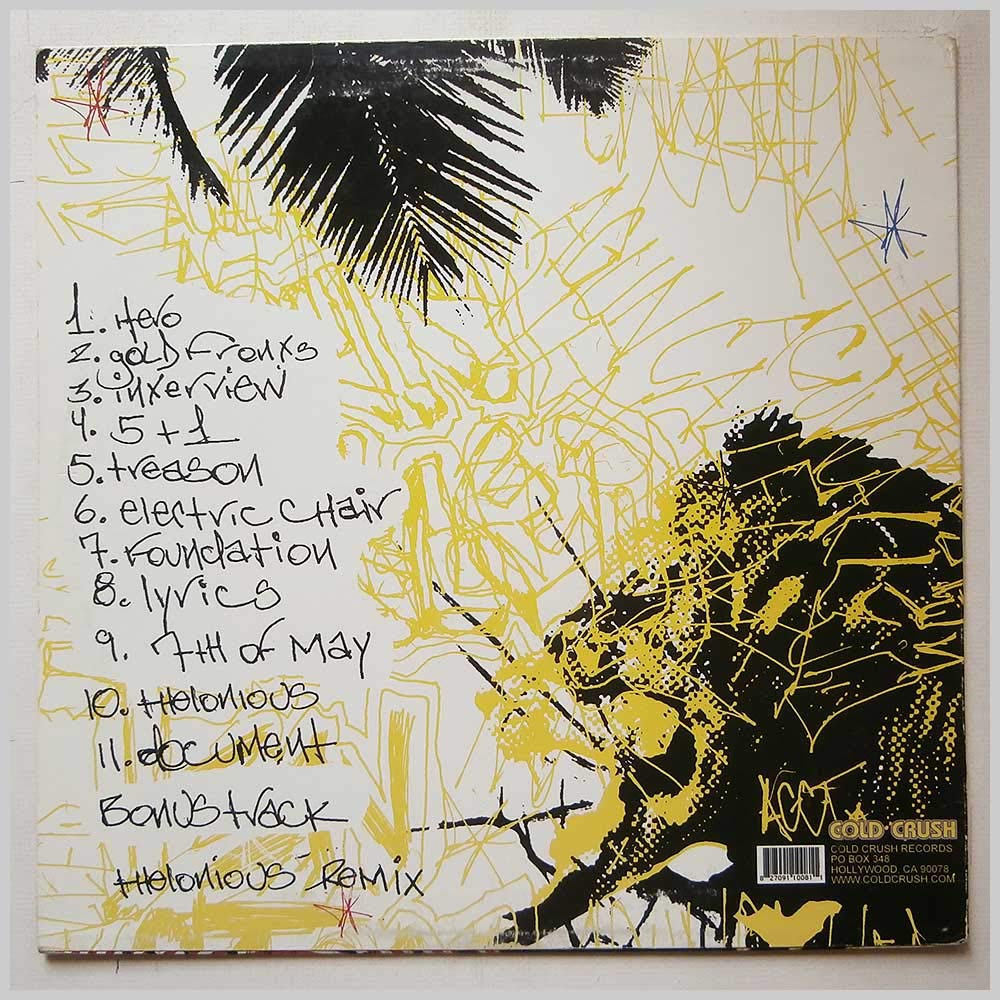 1. Hero
2. GOLD Fronxs
3. inxerview
4. 5+1
5. treason
6. electric CHair
7. Foundation
8. lyrics
9. 7tH OF MAY
10. tHelonious
11. document
Bonus track
tHelonious Remix
COLD CRUSH
COLD CRUSH RECORDS
PO BOX 348
HOLLYWOOD, CA 90078
WWW.COLDCRUSH.COM
8 27091 10081 1